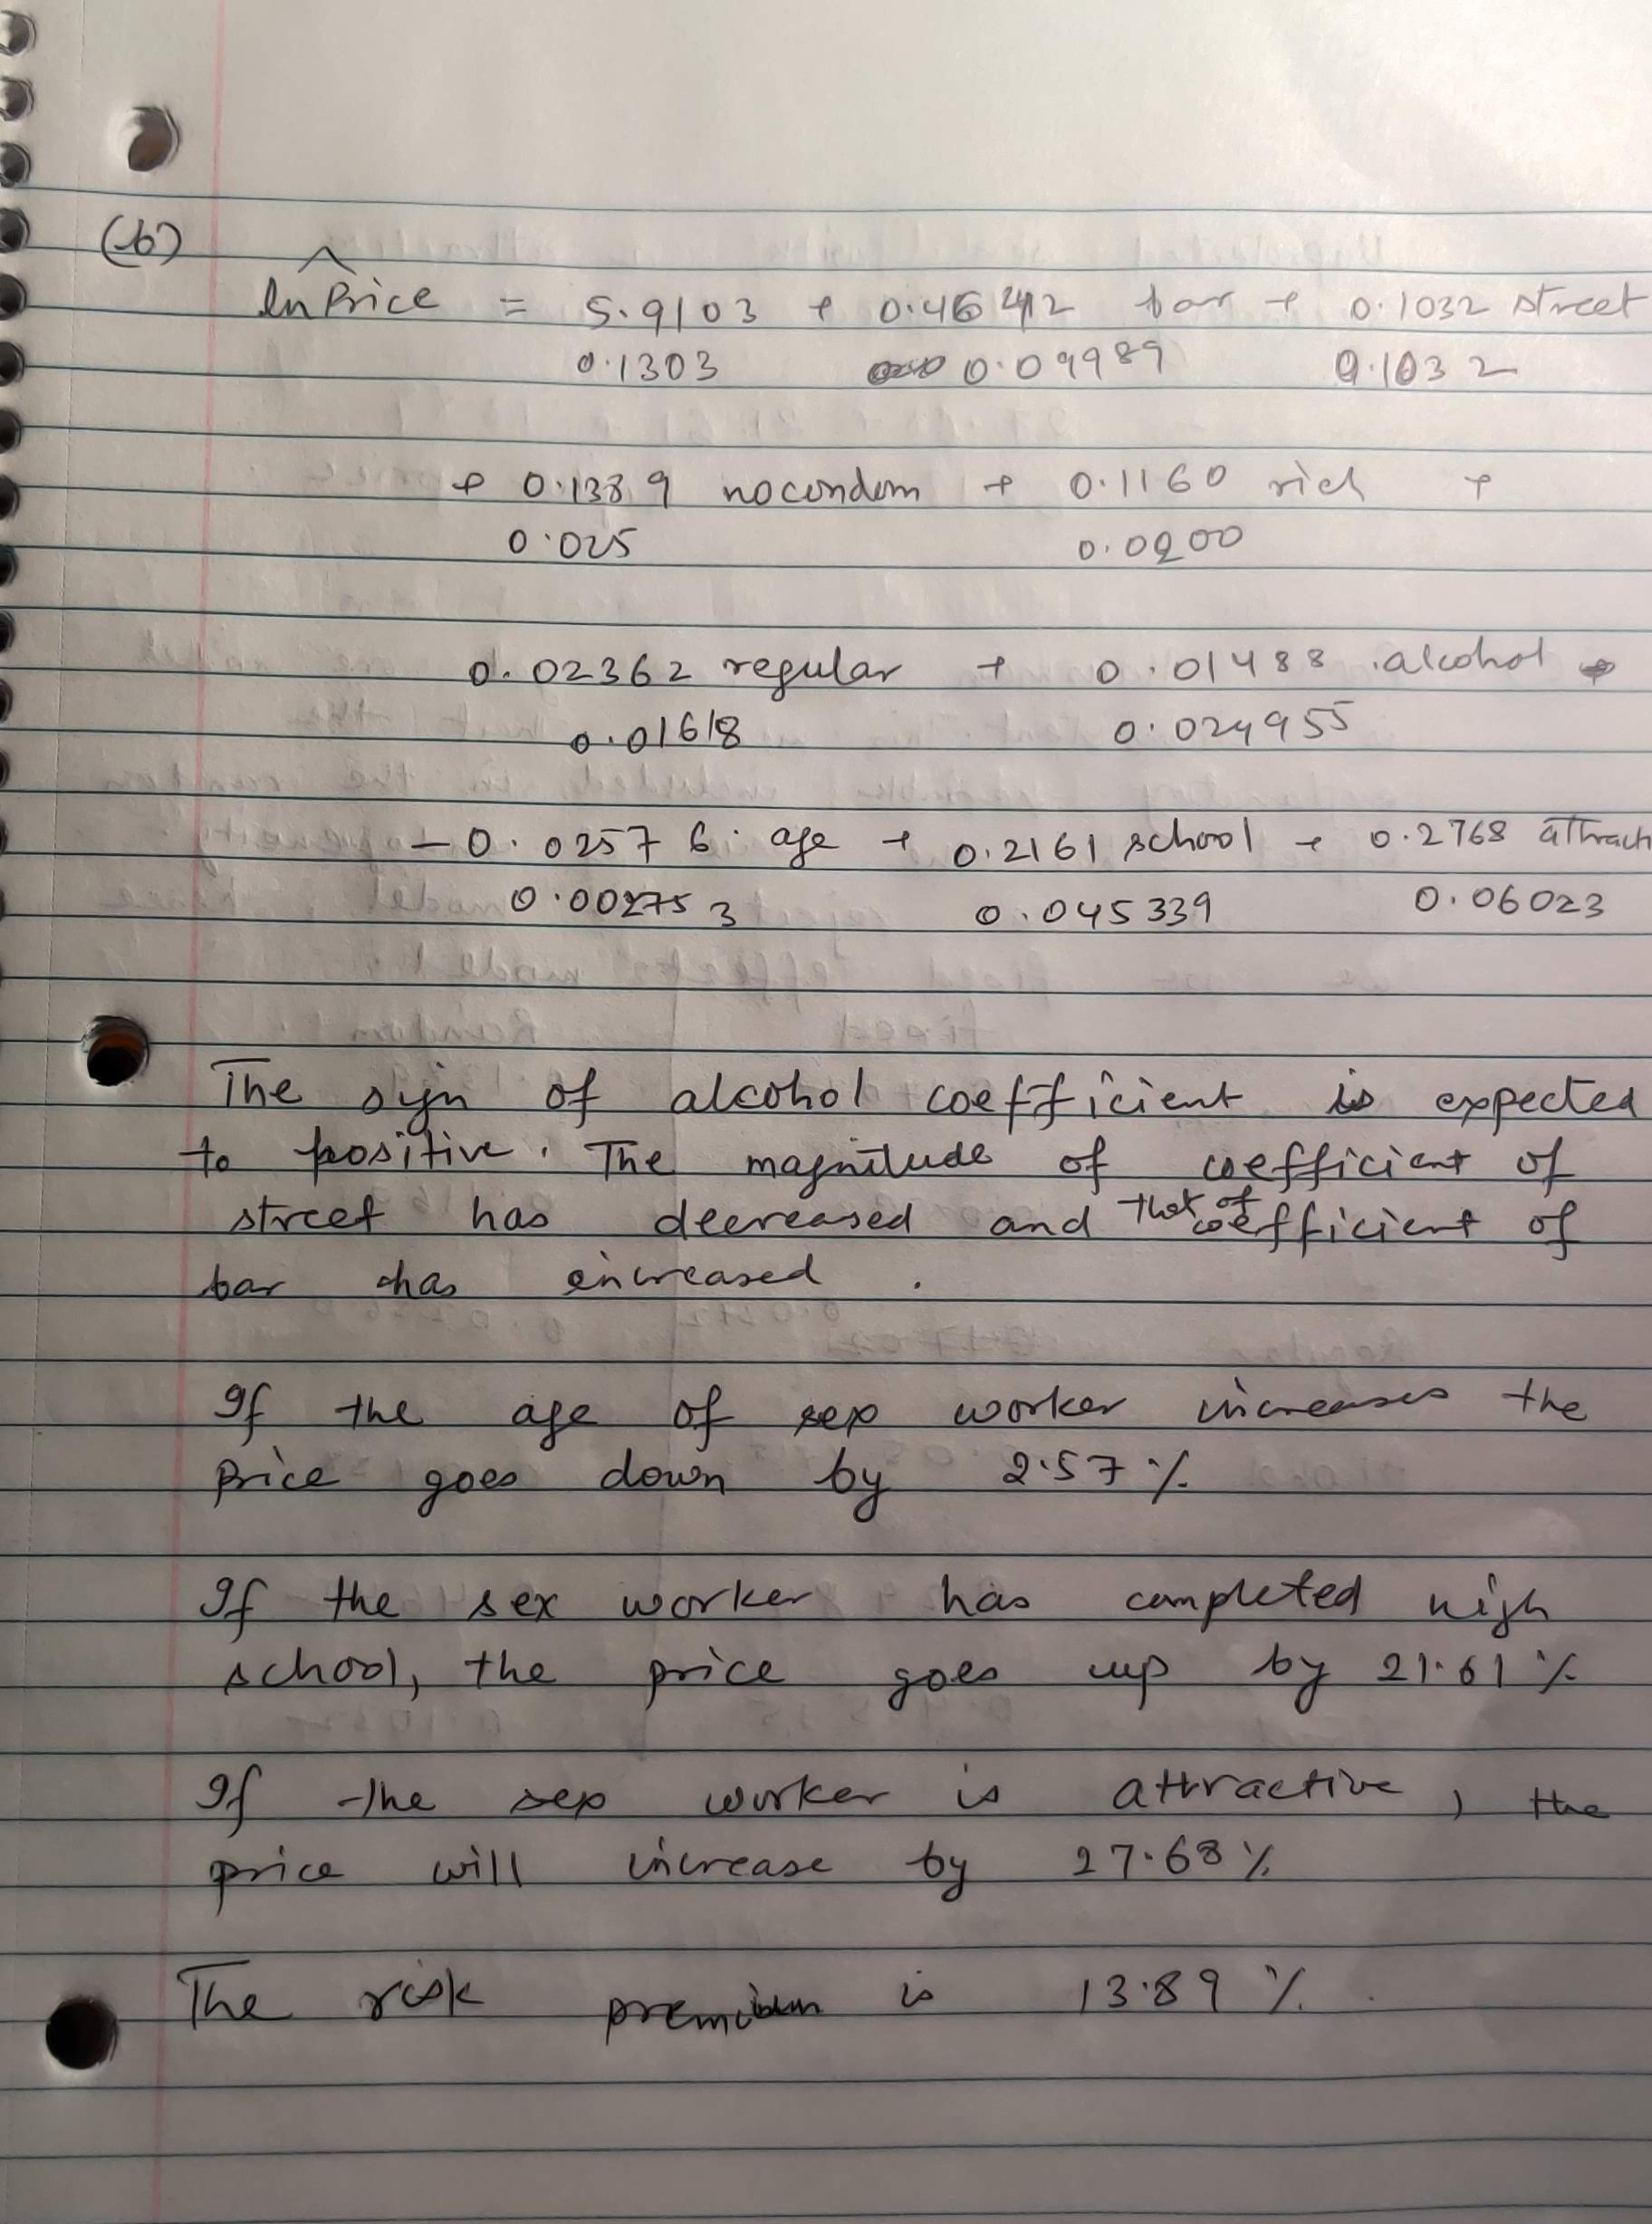 (b)
ln Price = 5.9103 + 0.46412 bar + 0.1032 street
0.1303 0.09989 0.1032
+ 0.1389 nocondom + 0.1160 rich +
0.025 0.0200
0.02362 regular + 0.01488 alcohol +
0.01618 0.024955
- 0.02576 age + 0.2161 school + 0.2768 attract
0.002753 0.045339 0.06023
The sign of alcohol coefficient is expected
to positive. The magnitude of coefficient of
street has decreased and that of coefficient of
bar has increased.
If the age of sex worker increases the
price goes down by 2.57 %
If the sex worker has completed high
school, the price goes up by 21.61 %
If the sex worker is attractive, the
price will increase by 27.68 %
The risk premium is 13.89 %.